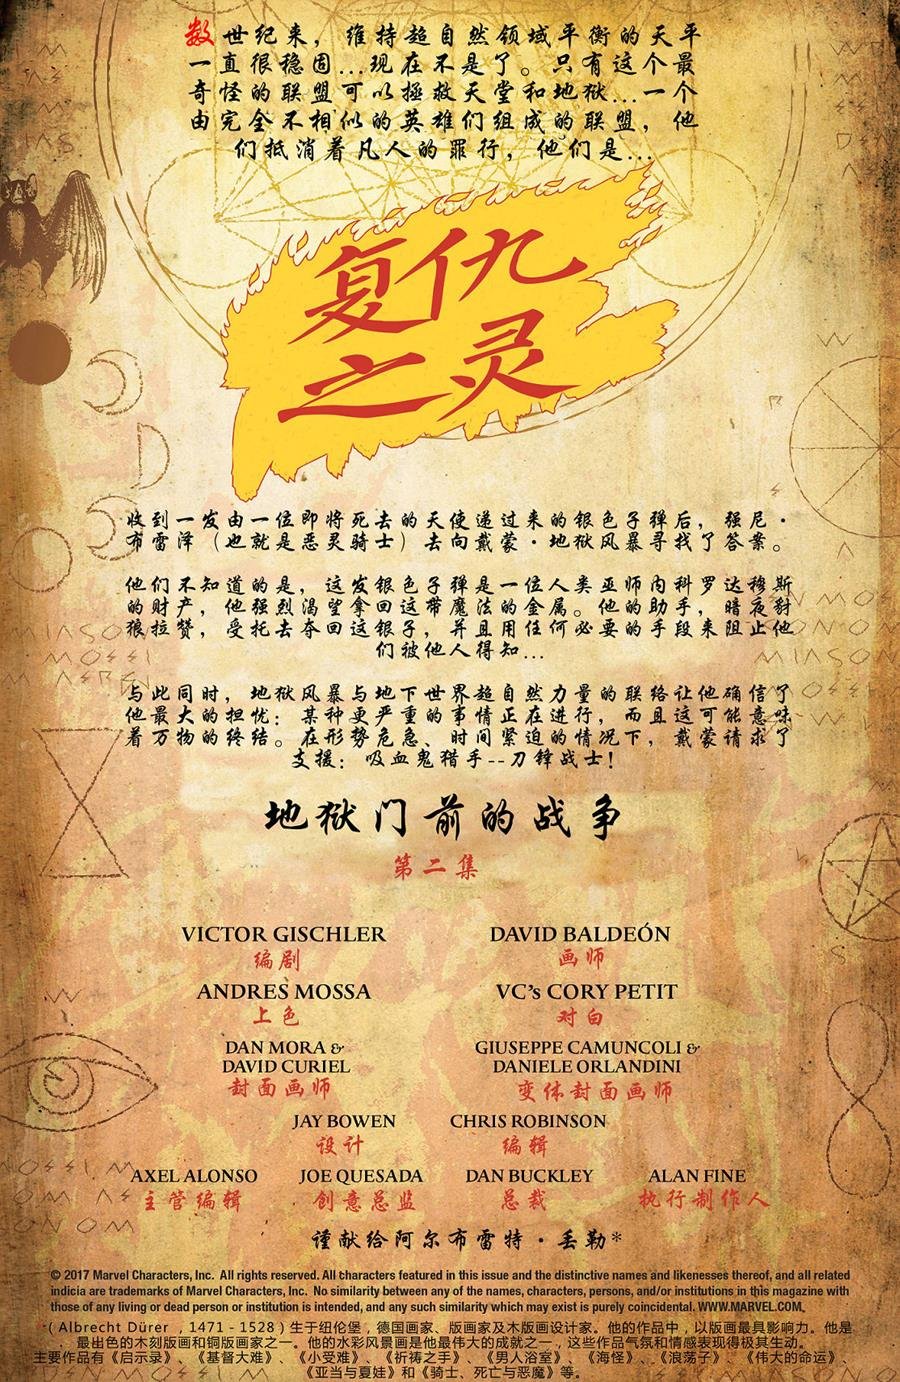 数世纪来，维持超自然领域平衡的天平
一直很稳固...现在不是了。只有这个最
奇怪的联盟可以拯救天堂和地狱...一个
由完全不相似的英雄们组成的联盟，他
们抵消着凡人的罪行，他们是...
复仇
之灵
收到一发由一位即将死去的天使递过来的银色子弹后，强尼·
布雷泽（也就是恶灵骑士）去向戴蒙·地狱风暴寻找了答案。
他们不知道的是，这发银色子弹是一位人类巫师内科罗达穆斯
的财产，他强烈渴望拿回这带魔法的金属。他的助手，暗夜豺
狼拉赞，受托去夺回这银子，并且用任何必要的手段来阻止他
们被他人得知...
与此同时，地狱风暴与地下世界超自然力量的联络让他确信了
他最大的担忧：某种更严重的事情正在进行，而且这可能意味
着万物的终结。在形势危急、时间紧迫的情况下，戴蒙请求了
支援：吸血鬼猎手--刀锋战士！
地狱门前的战争
第二集
VICTOR GISCHLER DAVID BALDEÓN
编剧 画师
ANDRES MOSSA VC's CORY PETIT
上色 对白
DAN MORA & GIUSEPPE CAMUNCOLI &
DAVID CURIEL DANIELE ORLANDINI
封面画师 变体封面画师
JAY BOWEN CHRIS ROBINSON
设计 编辑
AXEL ALONSO JOE QUESADA DAN BUCKLEY ALAN FINE
主管编辑 创意总监 总裁 执行制作人
谨献给阿尔布雷特·丢勒*
© 2017 Marvel Characters, Inc. All rights reserved. All characters featured in this issue and the distinctive names and likenesses thereof, and all related
indicia are trademarks of Marvel Characters, Inc. No similarity between any of the names, characters, persons, and/or institutions in this magazine with
those of any living or dead person or institution is intended, and any such similarity which may exist is purely coincidental. WWW.MARVEL.COM
*（Albrecht Dürer ，1471 - 1528）生于纽伦堡，德国画家、版画家及木版画设计家。他的作品中，以版画最具影响力。他是
最出色的木刻版画和铜版画家之一。他的水彩风景画是他最伟大的成就之一，这些作品气氛和情感表现得极其生动。
主要作品有《启示录》、《基督大难》、《小受难》、《祈祷之手》、《男人浴室》、《海怪》、《浪荡子》、《伟大的命运》、
《亚当与夏娃》和《骑士、死亡与恶魔》等。